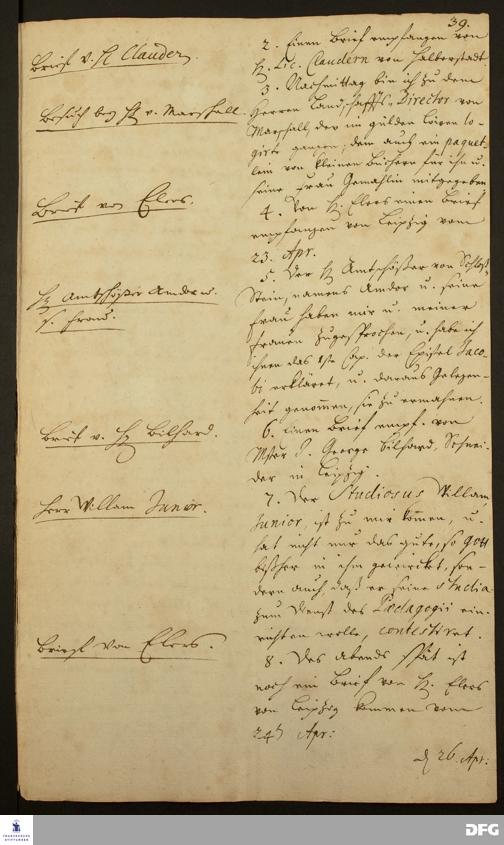 39.
Brieff v. H Clauder.
2. Einen Brief empfangen von
H. Lic. Claudern von Halberstadt
3. Nachmittag bin ich zu dem
Besuch bey H v. Marshall.
Herren Landschaffts-Director von
Marshall, der im gülden Löwen lo-
girt, gangen; dem auch ein paquet-
lein von kleinen Büchern für ihn u.
seine Frau Gemahlin mitgegeben
Brief von Elers.
4. Von H. Elers einen Brief
empfangen von Leipzig vom
23. Apr.
5. Der H Amtschößer von Schloß
H Amtschößer Amdor u.
s. Frau.
Stein, namens Amdor u. seine
Frau haben mir u. meiner
Frauen zugesprochen, u. habe ich
ihnen das 1ste Cap. der Epistel Jaco-
bi erkläret, u. daraus Gelegen-
heit genommen, sie zu ermahnen.
Brief v. H Bilhard.
6. Einen Brief empf. von
Mster J. George Bilhard, Schnei-
der in Leipzig.
Herr Willam Junior.
7. Der Studiosus Willam
Junior, ist zu mir kommen, u.
hat nicht nur das gute, so Gott
bißher in ihm gewircket, son-
dern auch, daß er seine Studia
zum Dienst des Paedagogii ein-
richten wolle, contestiret.
Brieff von Elers.
8. Des abends spät ist
noch ein Brief von H. Elers
von Leipzig kommen vom
24 Apr:
d 26. Apr:
FRANCKESCHE STIFTUNGEN
DFG